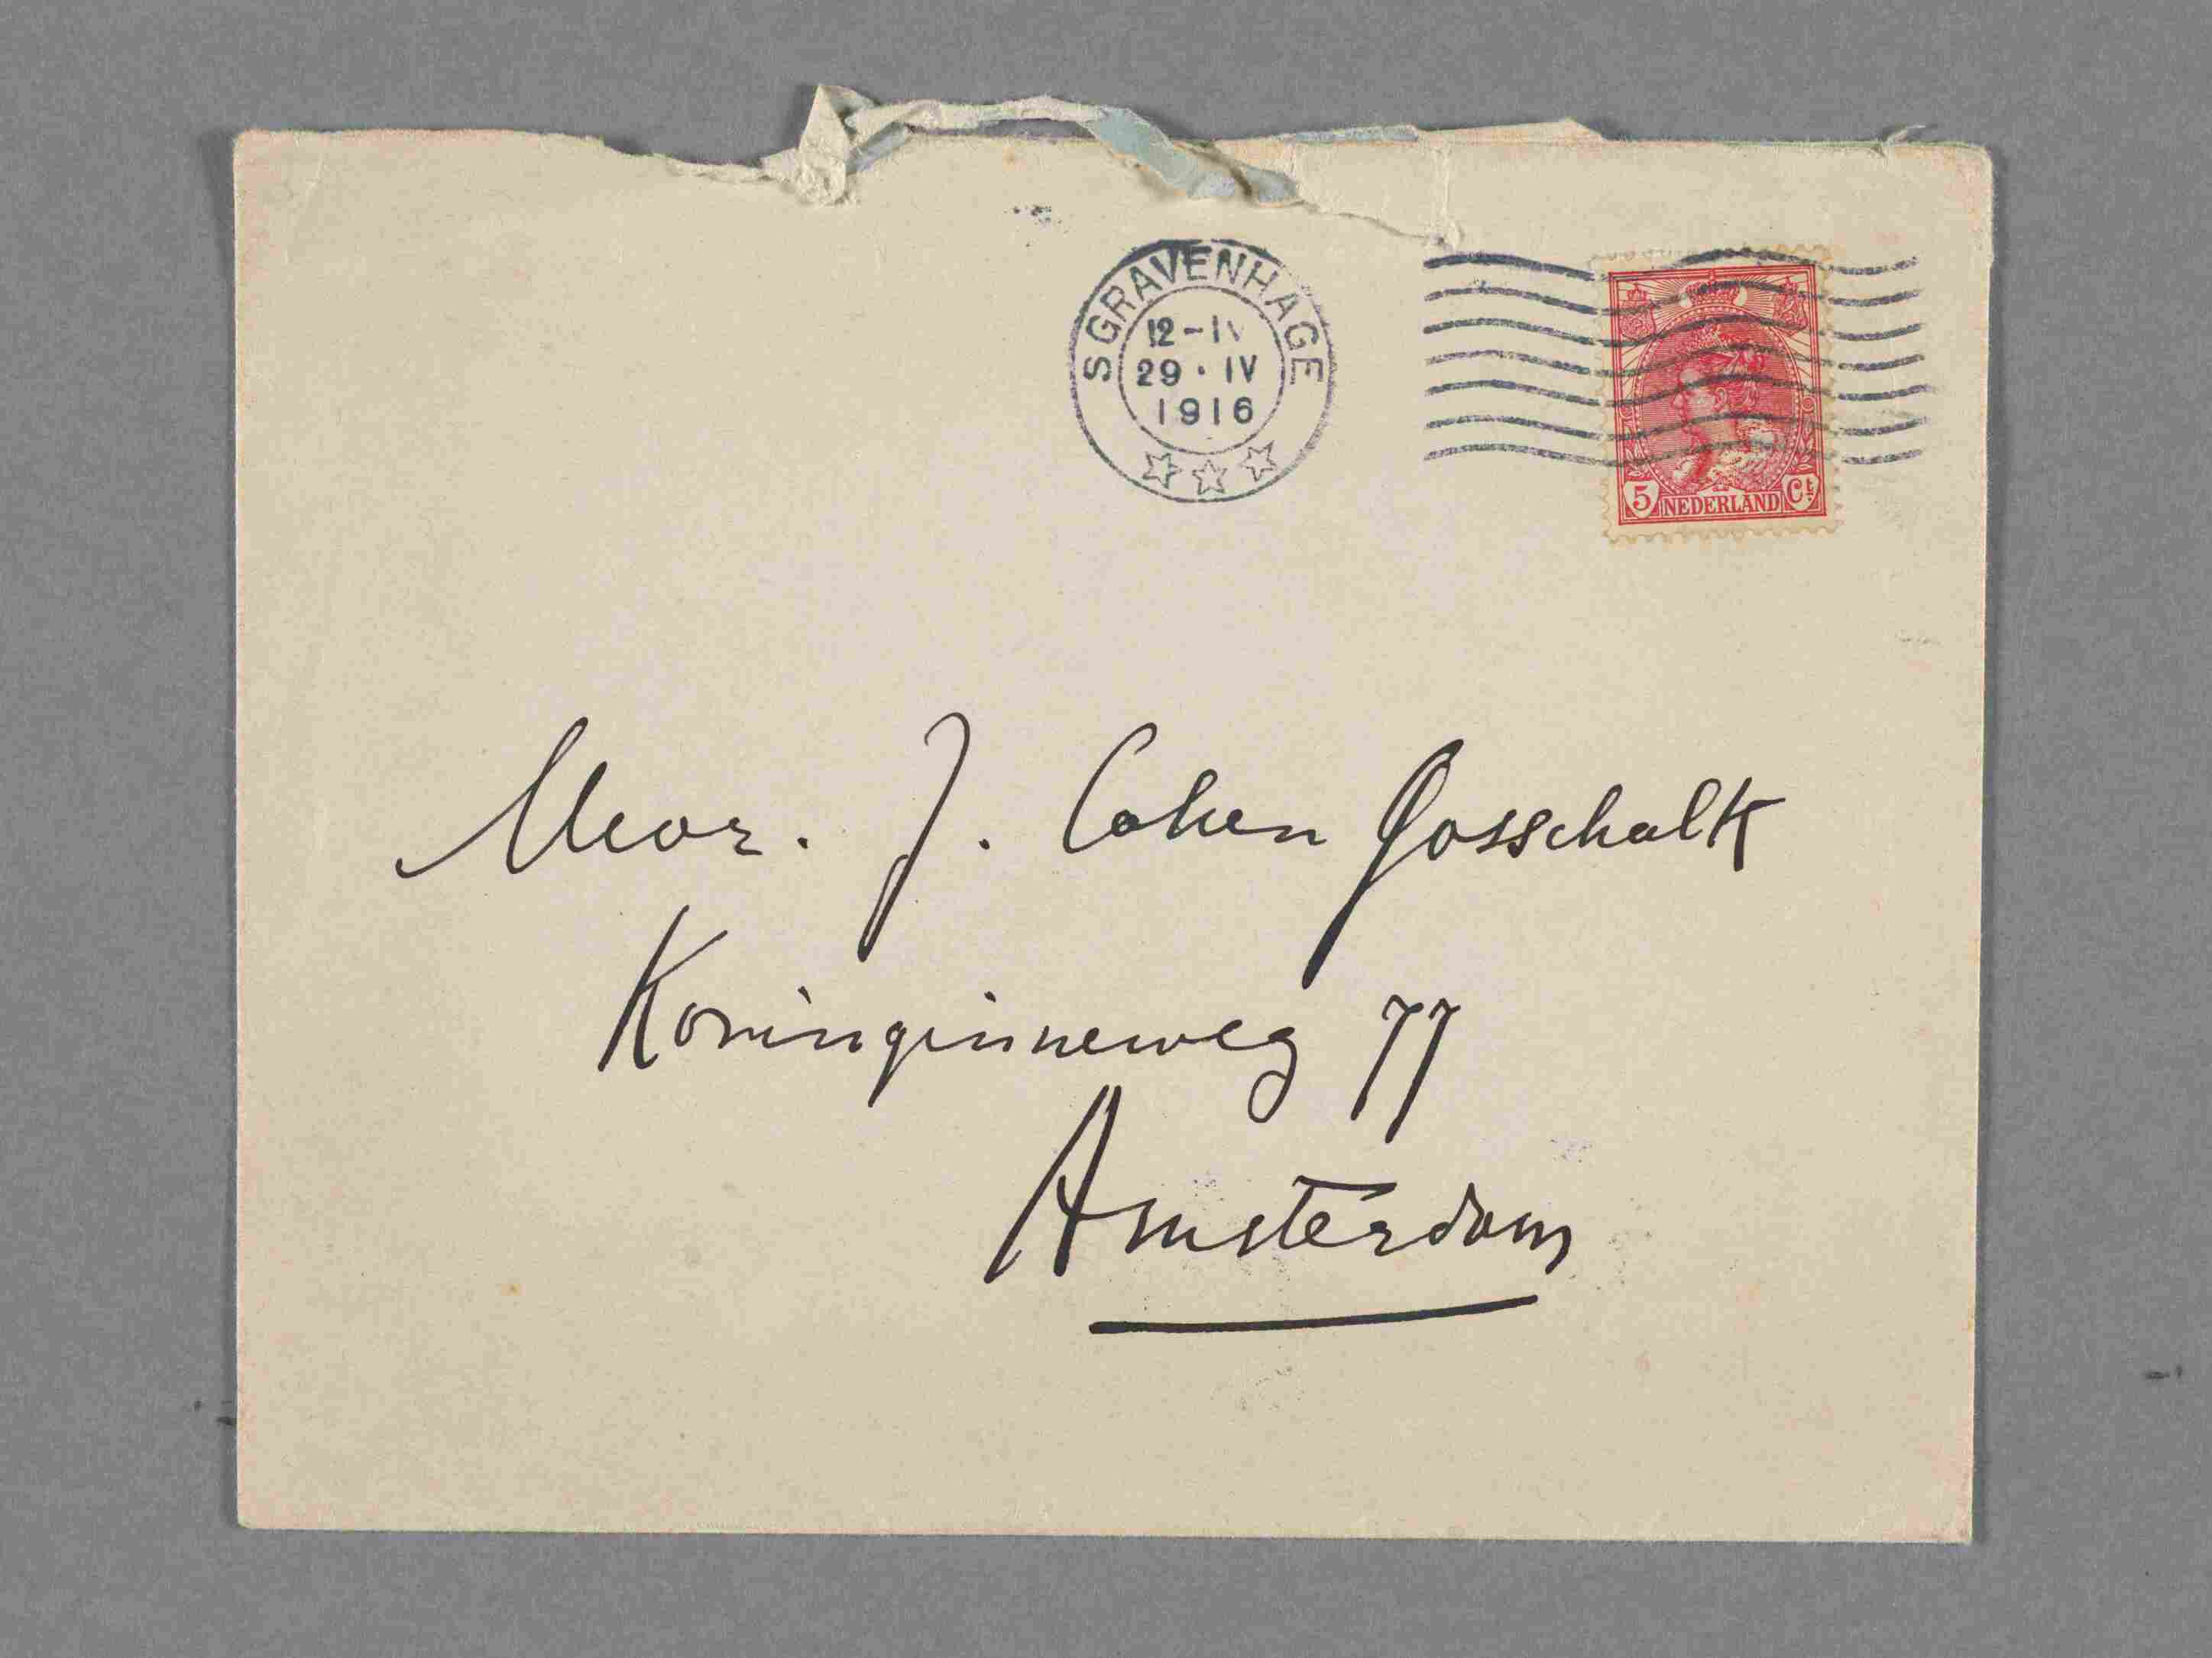 SGRAVENHAGE
12-IV
29 · IV
1916
5 NEDERLAND Ct
Mevr. J. Cohen Gosschalk
Koninginneweg 77
Amsterdam